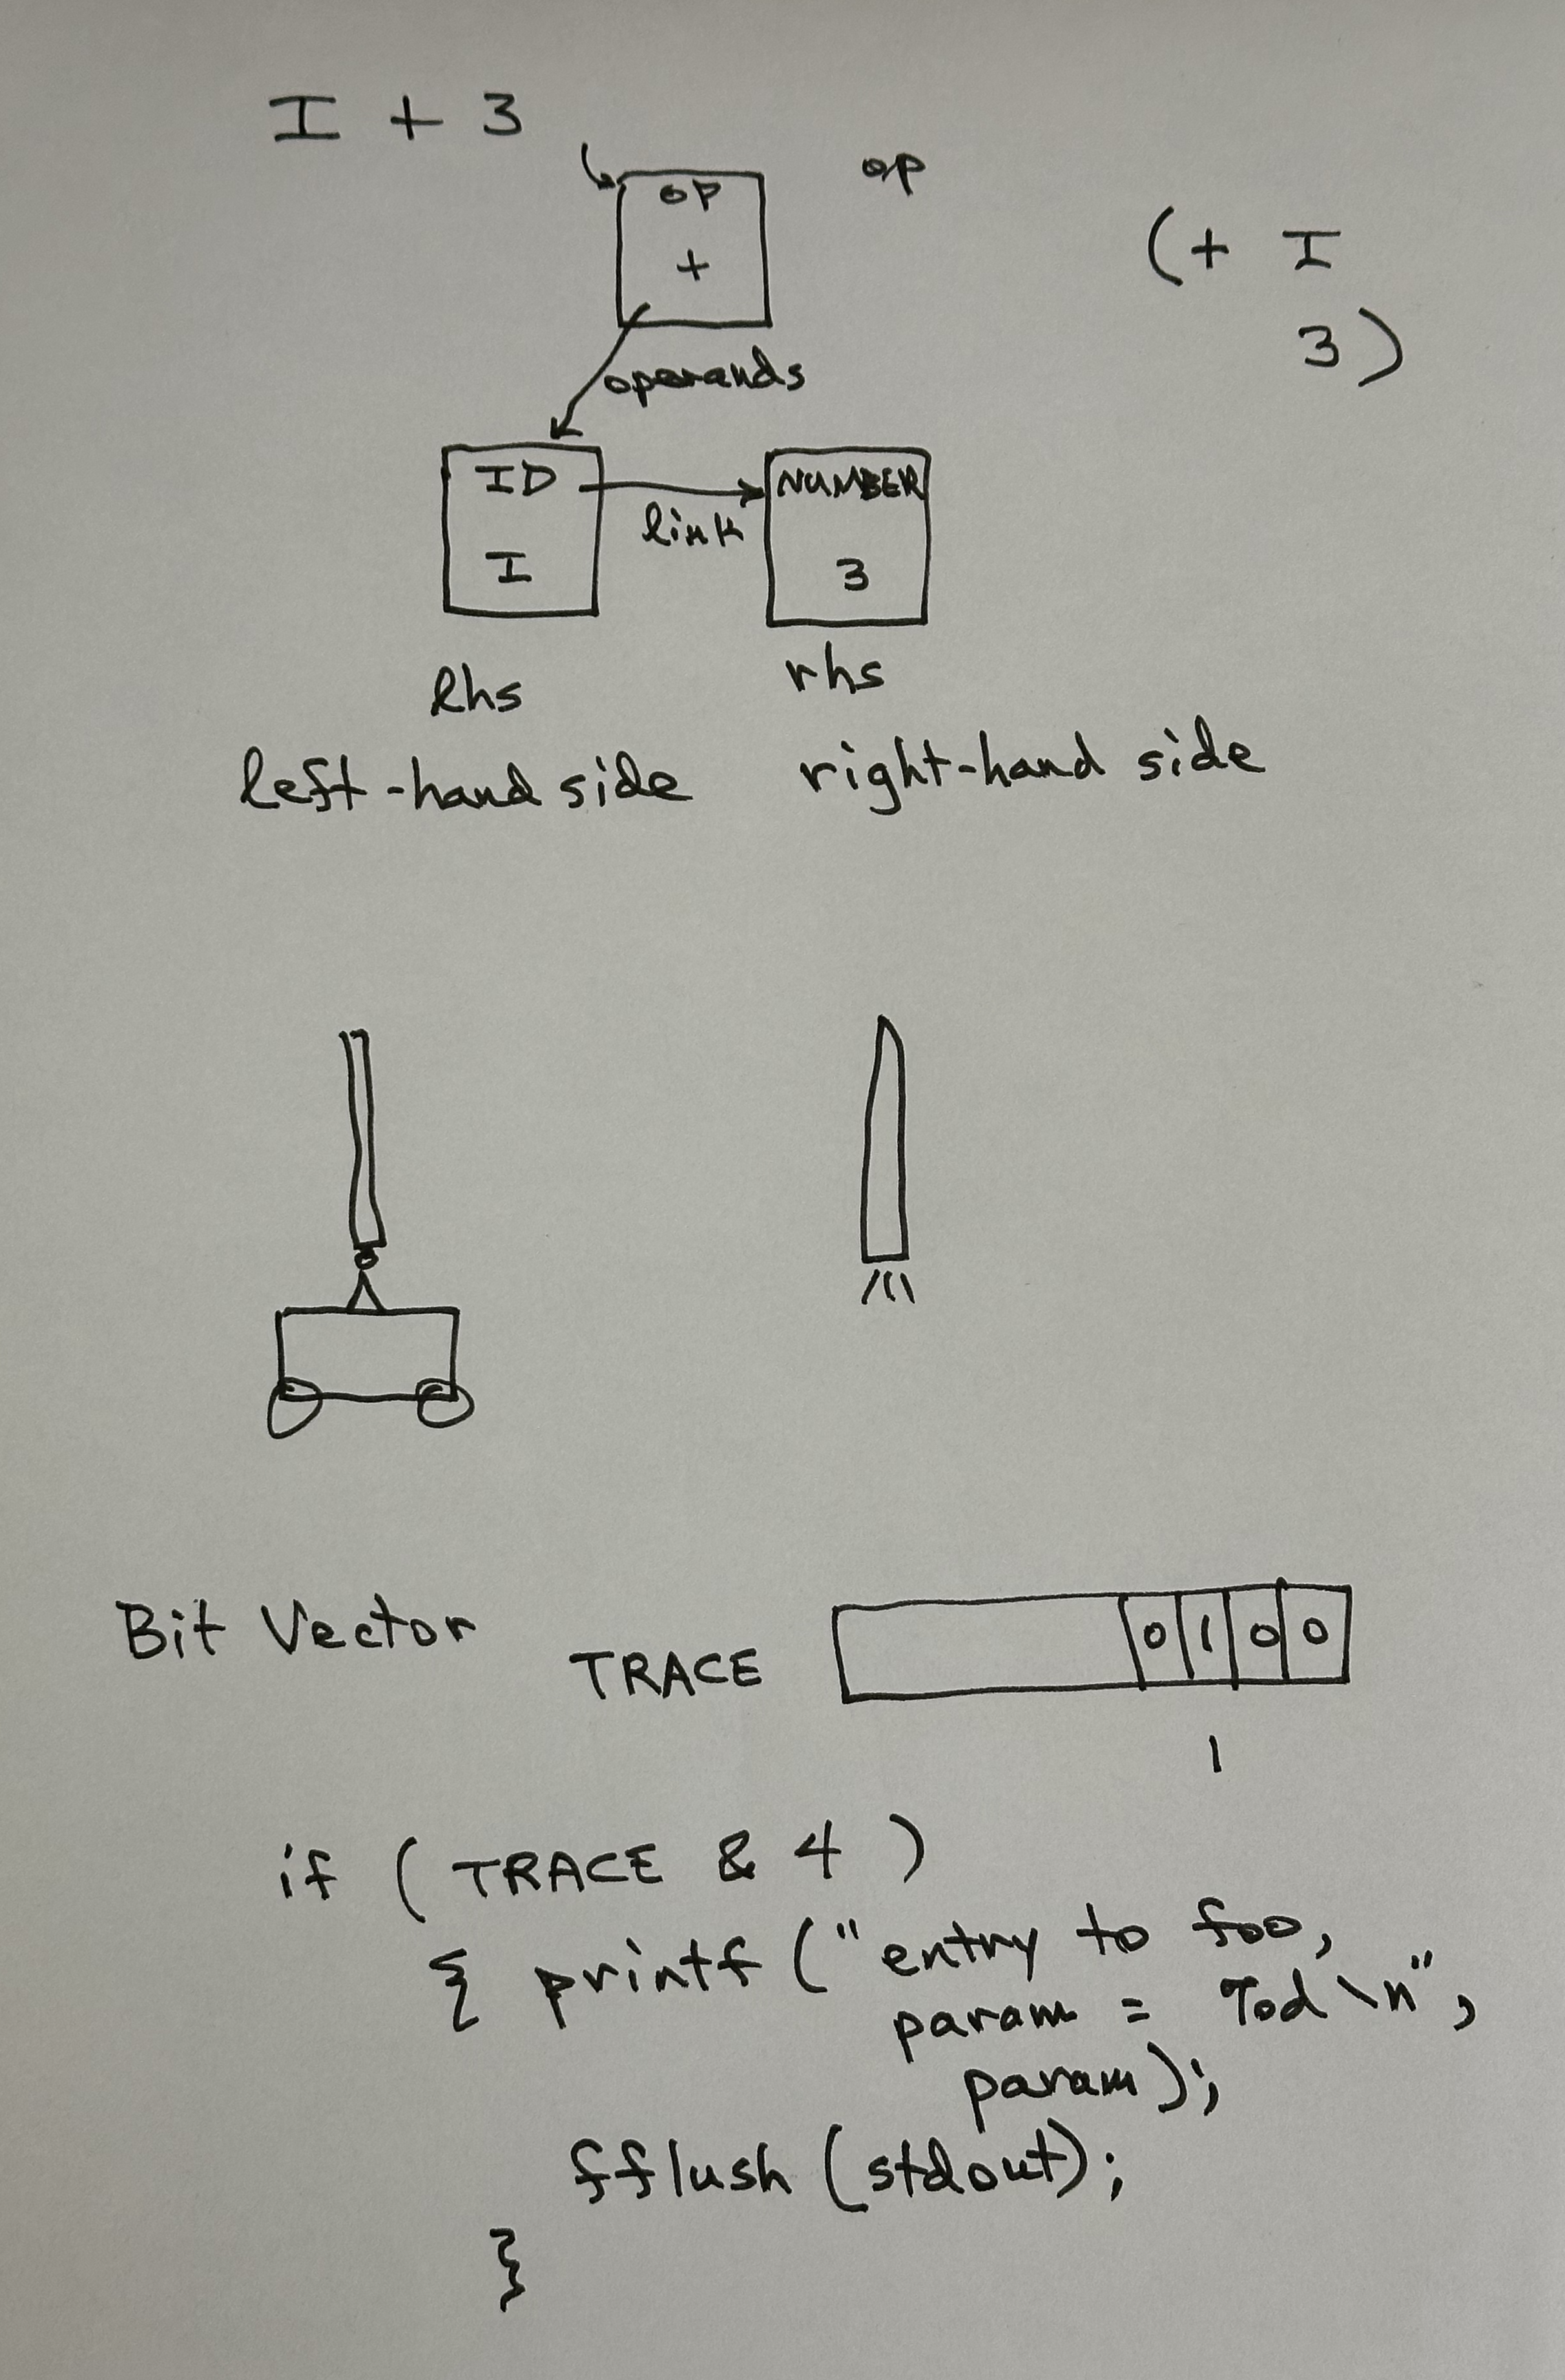 I + 3
op
+
op
(+ I
3)
operands
ID
I
link
NUMBER
3
lhs
rhs
left-hand side
right-hand side
Bit Vector
TRACE
0 1 0 0
1
if ( TRACE & 4 )
{ printf ("entry to foo,
param = %d\n",
param);
fflush (stdout);
}